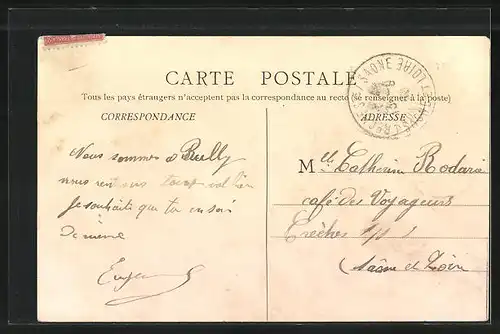 CARTE POSTALE
Tous les pays étrangers n'acceptent pas la correspondance au recto (se renseigner à la poste)
CORRESPONDANCE
ADRESSE
SAONE ET LOIRE
Nous sommes à Bully
nous
Je souhaite que tu en sois
de même
Mlle Catherine Rodarie
café des Voyageurs
Crèches s/s
Saône et Loire